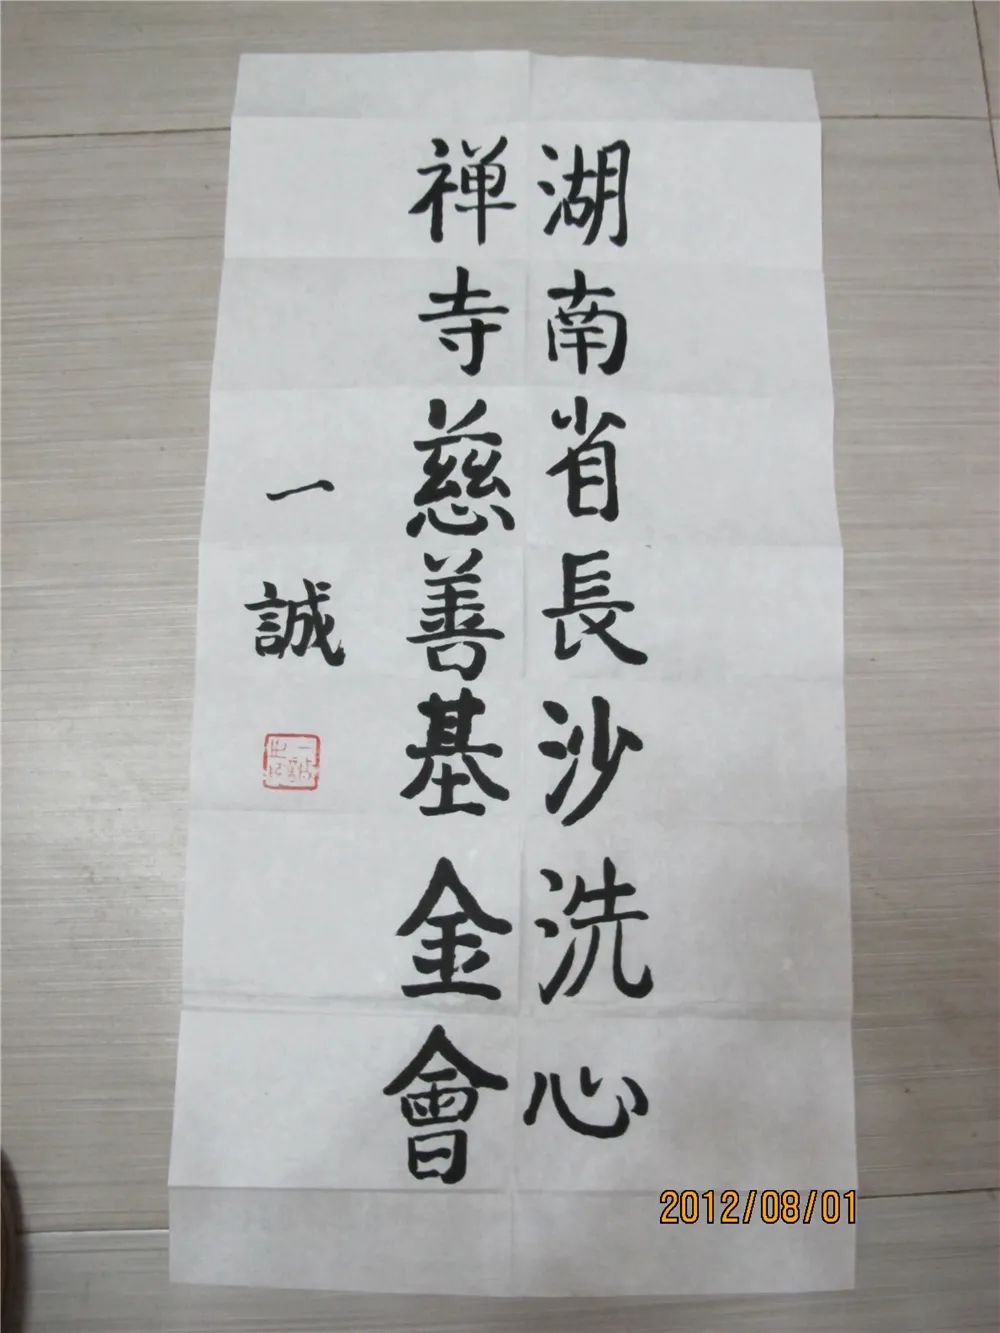 湖南省長沙洗心
禅寺慈善基金會
一誠
一誠之印
2012/08/01